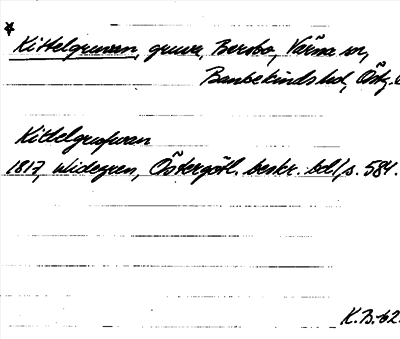 Kittelgruvan, gruva, Bersbo, Värna sn,
Bankekinds hd, Östg.
Kittelgrufwan
1817, Widegren, Östergötl. beskr. bd 1, s. 584.
K.B-62.